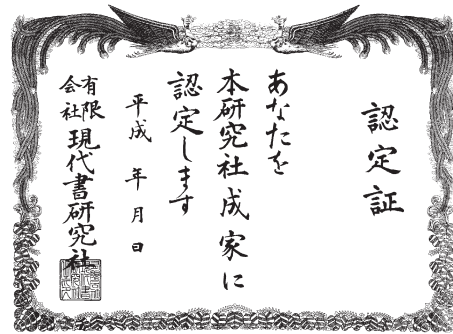 認定証
あなたを
本研究社成家に
認定します
平成　年　月　日
有限会社現代書研究社